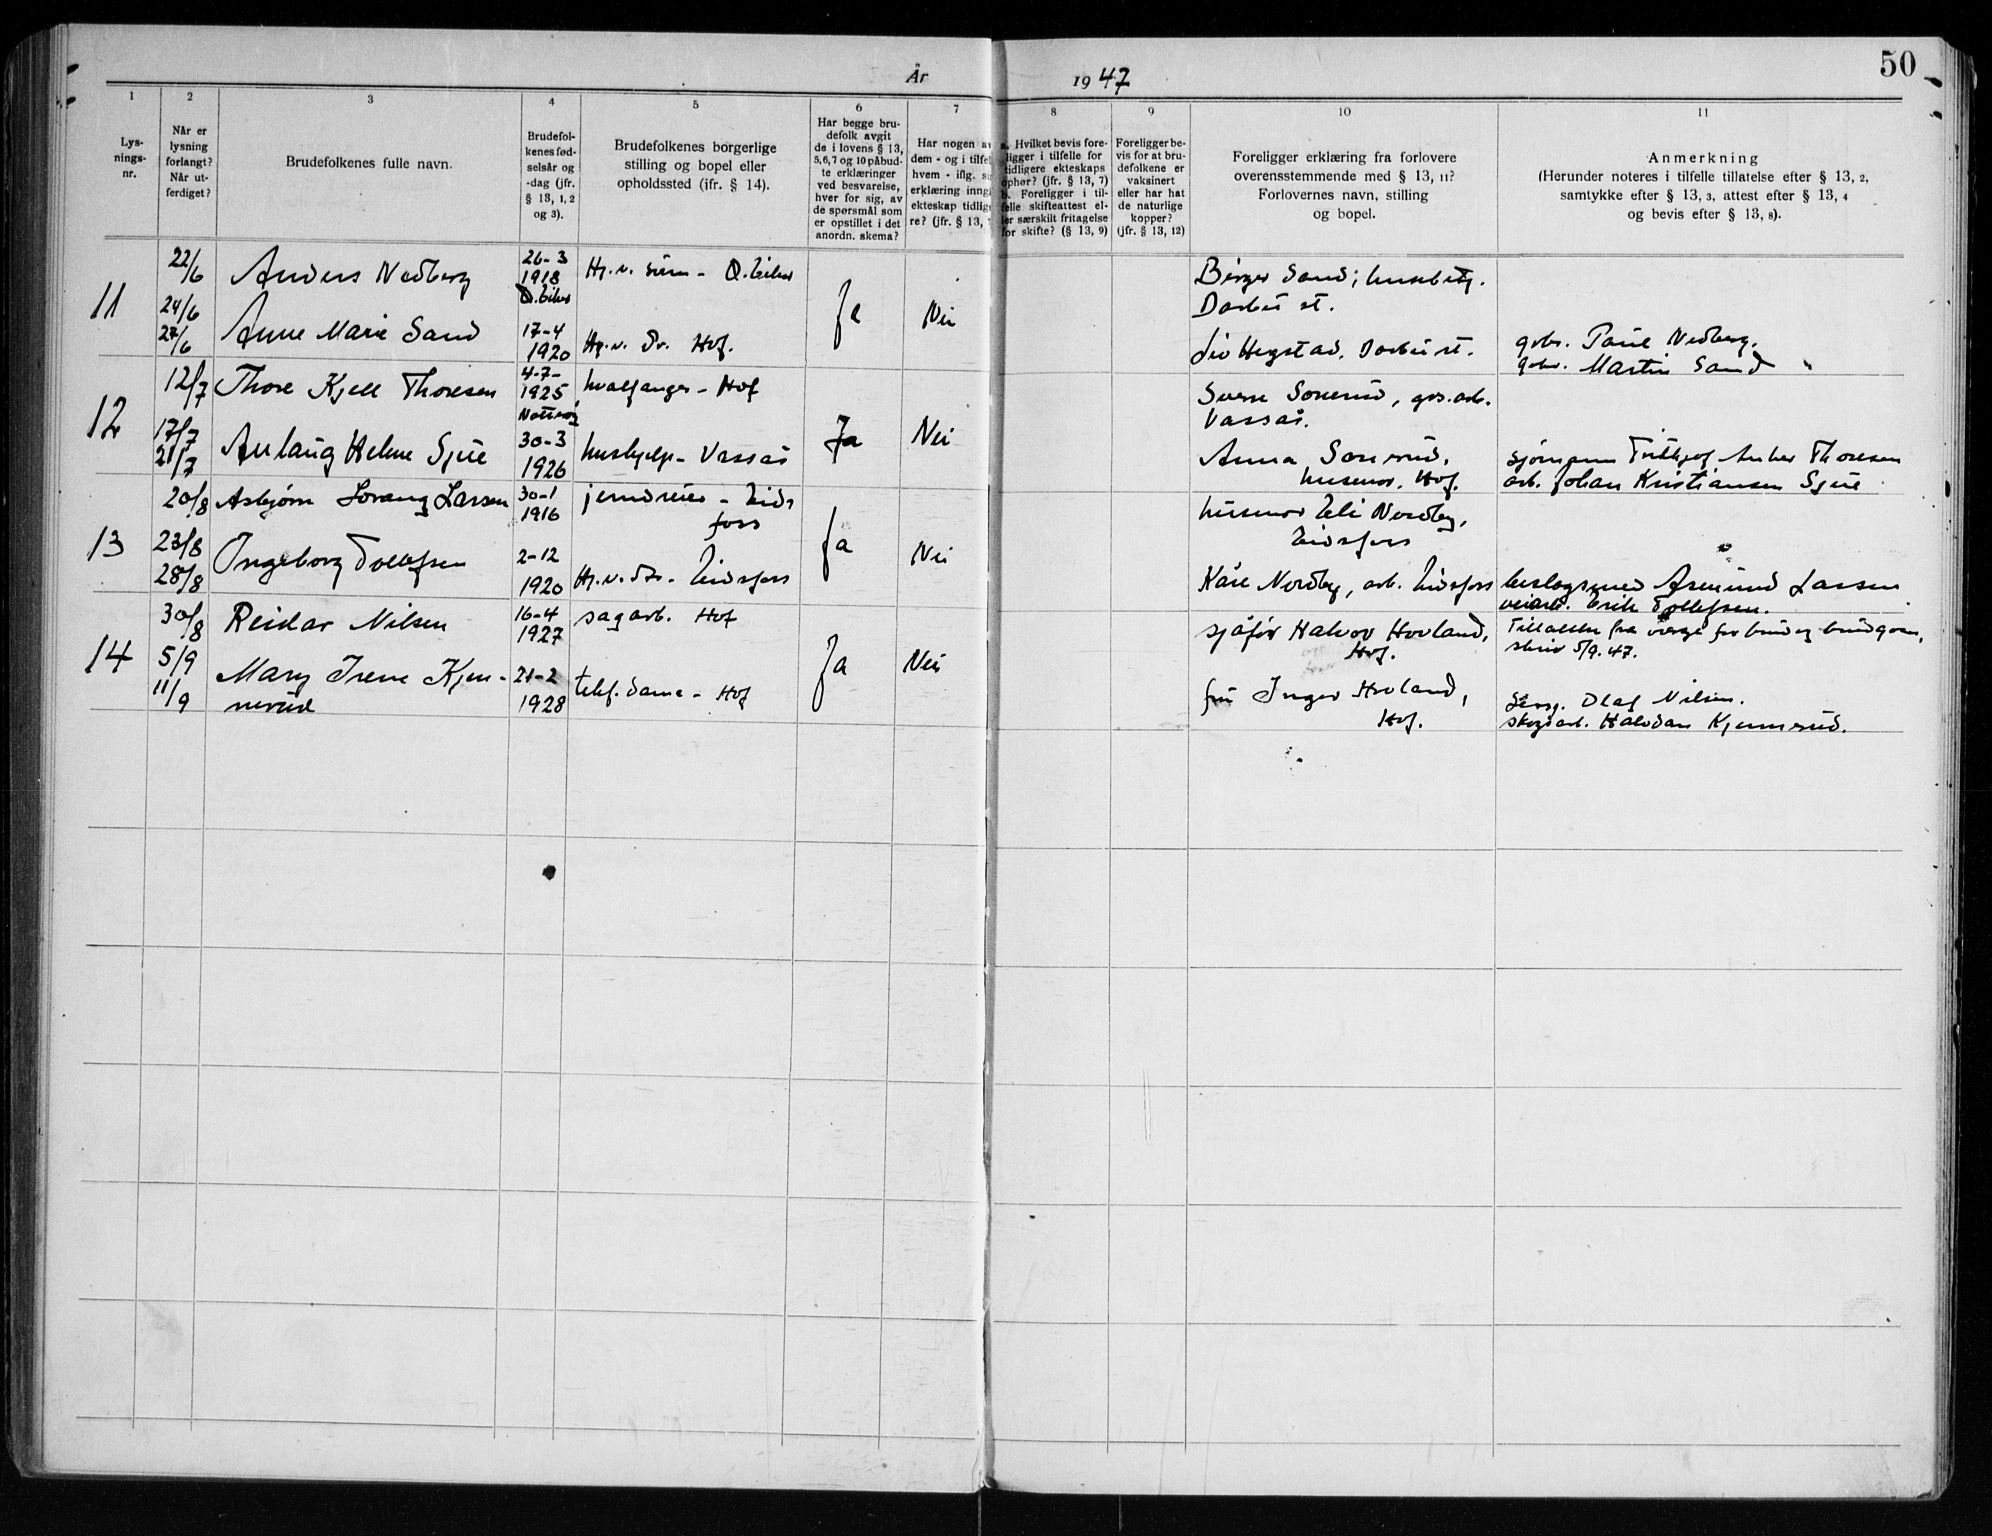 50
År 1947
1 2 3 4 5 6 7 8 9 10 11
Lys-
nings-
nr.
Når er
lysning
forlangt?
Når ut-
ferdiget?
Brudefolkenes fulle navn.
Brudefol-
kenes fød-
selsår og
-dag (jfr.
§ 13, 1, 2
og 3).
Brudefolkenes borgerlige
stilling og bopel eller
opholdssted (ifr. § 14).
Har begge bru-
defolk avgit
de i lovens § 13,
5, 6, 7 og 10 påbud-
te erklæringer
ved besvarelse,
hver for sig, av
de spørsmål som
er opstillet i det
anordn. skema?
Har nogen av
dem - og i tilfel
hvem - iflg. si
erklæring inng
ekteskap tidlig
re? (jfr. § 13, 7
a. Hvilket bevis fore-
ligger i tilfelle for
tidligere ekteskaps
ophør? (jfr. § 13, 7)
b. Foreligger i til-
felle skifteattest el-
ler særskilt fritagelse
for skifte? (§ 13, 9)
Foreligger be-
vis for at bru-
defolkene er
vaksinert
eller har hat
de naturlige
kopper?
(jfr. § 13, 12)
Foreligger erklæring fra forlovere
overensstemmende med § 13, 11?
Forlovernes navn, stilling
og bopel.
Anmerkning
(Herunder noteres i tilfelle tillatelse efter § 13, 2,
samtykke efter § 13, 3, attest efter § 13, 4
og bevis efter § 13, 8).
11
22/6
24/6
27/6
Anders Nedberg
26-3
1918
Ø. Eiker
Hj.v. sønn - Ø. Eiker
Anne Marie Sand
17-4
1920
Hj.v. Dr. Hof.
Ja
Nei
Birger Sand,
Darbu st.
Liv Hegstad, Darbu st.
gbr. Paul Nedberg.
gbr. Martin Sand
12
12/7
17/7
21/7
Thore Kjell Thoresen
4-7-
1925
Nøtterøy
hvalfanger - Hof
Aulaug Helene Sjue
30-3
1926
hushjelp - Vassås
Ja
Nei
Vassås.
Anna
husmor, Hof.
sjømann Thoresen
arb. Johan Kristiansen Sjue
13
20/8
23/8
28/8
Asbjørn Lorang Larsen
30-1
1916
jerndreier - Eids
foss
Ingeborg Tollefsen
2-12
1920
Hj.v. dtr. - Eidsfoss
Ja
Nei
husmor Eli Nordby,
Eidsfoss
Kåre Nordby, arb. Eidsfoss
Larsen
veiarb. Erik Tollefsen.
14
30/8
5/9
11/9
Reidar Nilsen
16-4
1927
sagarb. Hof
Mary Irene Kjen-
nerud
21-2
1928
telef. dame - Hof
Ja
Nei
sjåfør Halvor Hovland,
Hof.
fru Inger Hovland,
Hof.
Tillatelse fra verge for brud og brudgom,
skriv 5/9.47.
Olaf Nilsen.
skogsarb. Halvdan Kjennerud.